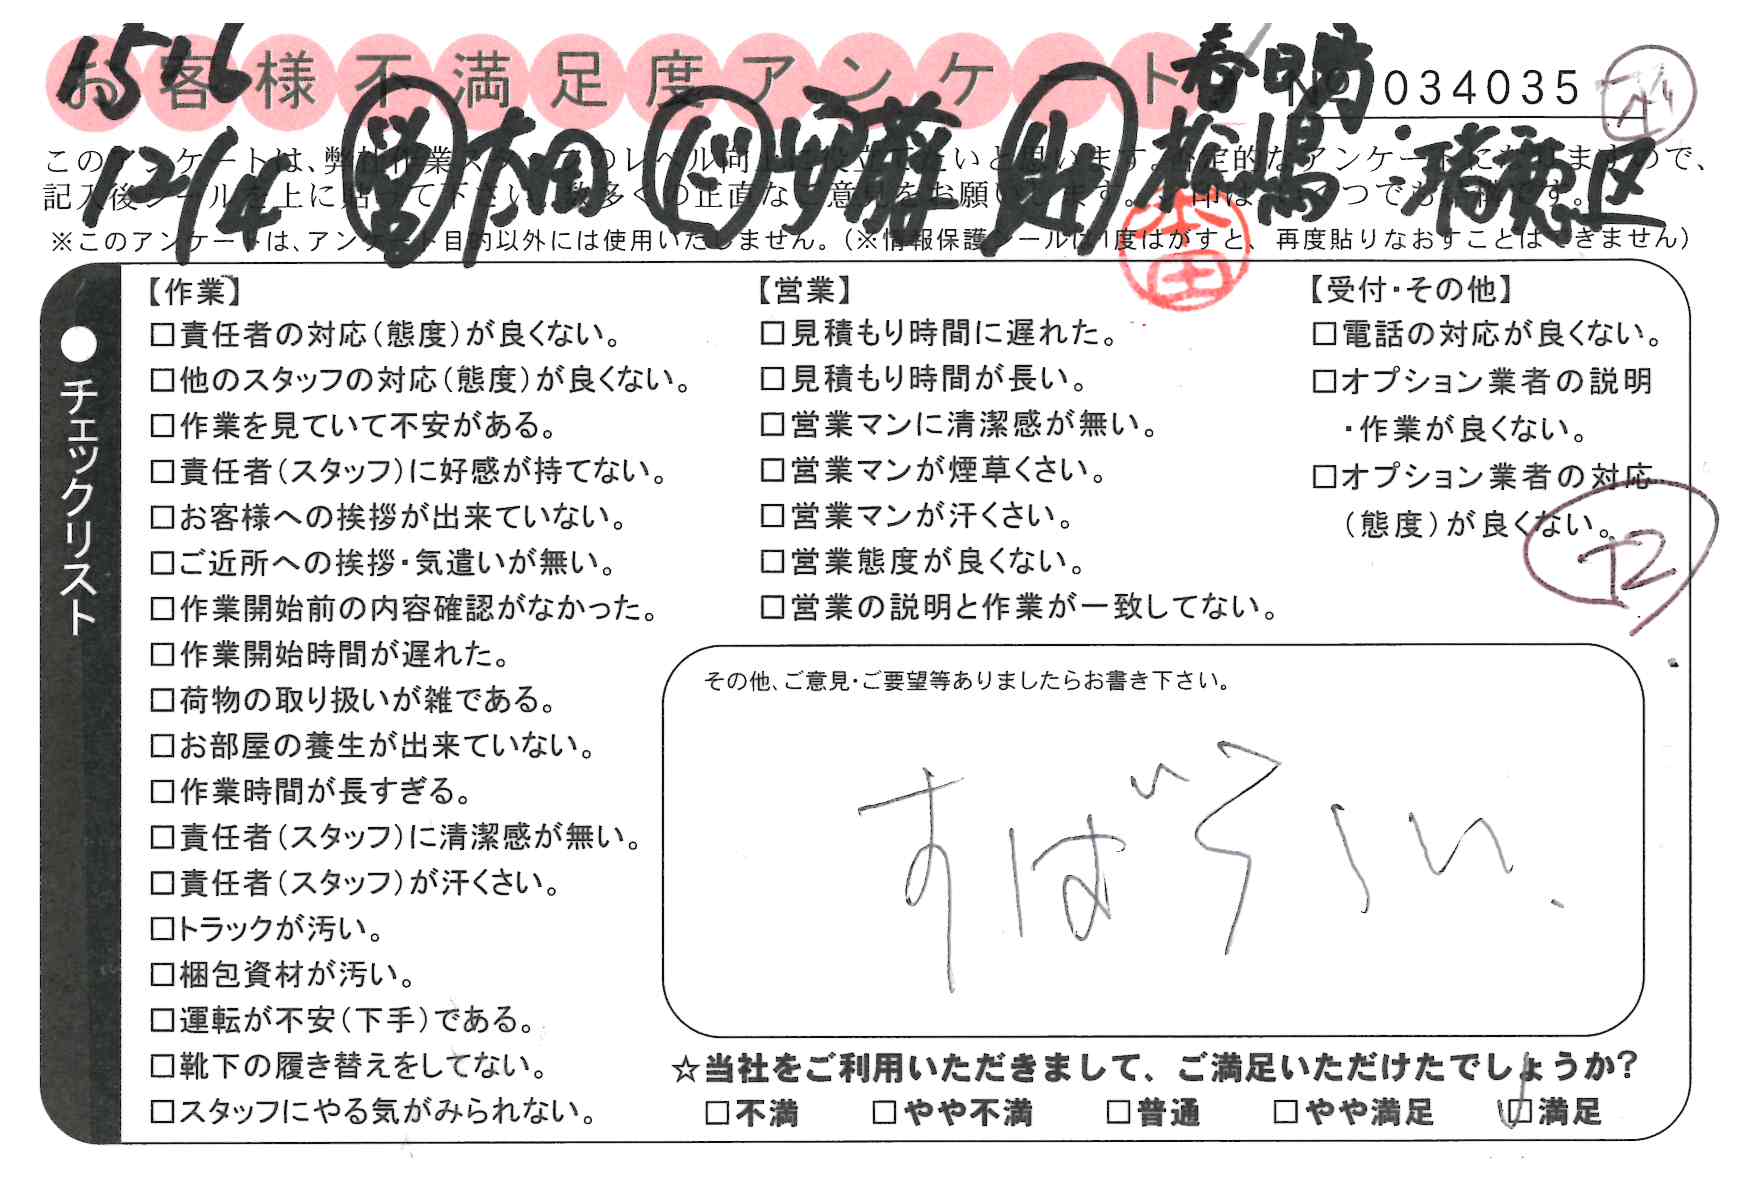 お客様不満足度アンケート
№ 034035
1546
春日
12/4 営 太田 伊藤 松嶋 瑞穂区
このアンケートは、弊社作業スタッフのレベル向上に役立てたいと思います。否定的なアンケートになりますので、
記入後シールを上に貼って下さい。数多くの正直なご意見をお願いします。
※このアンケートは、アンケート目的以外には使用いたしません。(※情報保護シールは1度はがすと、再度貼りなおすことはできません)
●チェックリスト
【作業】
□責任者の対応(態度)が良くない。
□他のスタッフの対応(態度)が良くない。
□作業を見ていて不安がある。
□責任者(スタッフ)に好感が持てない。
□お客様への挨拶が出来ていない。
□ご近所への挨拶・気遣いが無い。
□作業開始前の内容確認がなかった。
□作業開始時間が遅れた。
□荷物の取り扱いが雑である。
□お部屋の養生が出来ていない。
□作業時間が長すぎる。
□責任者(スタッフ)に清潔感が無い。
□責任者(スタッフ)が汗くさい。
□トラックが汚い。
□梱包資材が汚い。
□運転が不安(下手)である。
□靴下の履き替えをしてない。
□スタッフにやる気がみられない。
【営業】
□見積もり時間に遅れた。
□見積もり時間が長い。
□営業マンに清潔感が無い。
□営業マンが煙草くさい。
□営業マンが汗くさい。
□営業態度が良くない。
□営業の説明と作業が一致してない。
【受付・その他】
□電話の対応が良くない。
□オプション業者の説明
・作業が良くない。
□オプション業者の対応
(態度)が良くない。
12
その他、ご意見・ご要望等ありましたらお書き下さい。
すばらしい.
☆当社をご利用いただきまして、ご満足いただけたでしょうか?
□不満 □やや不満 □普通 □やや満足 □満足